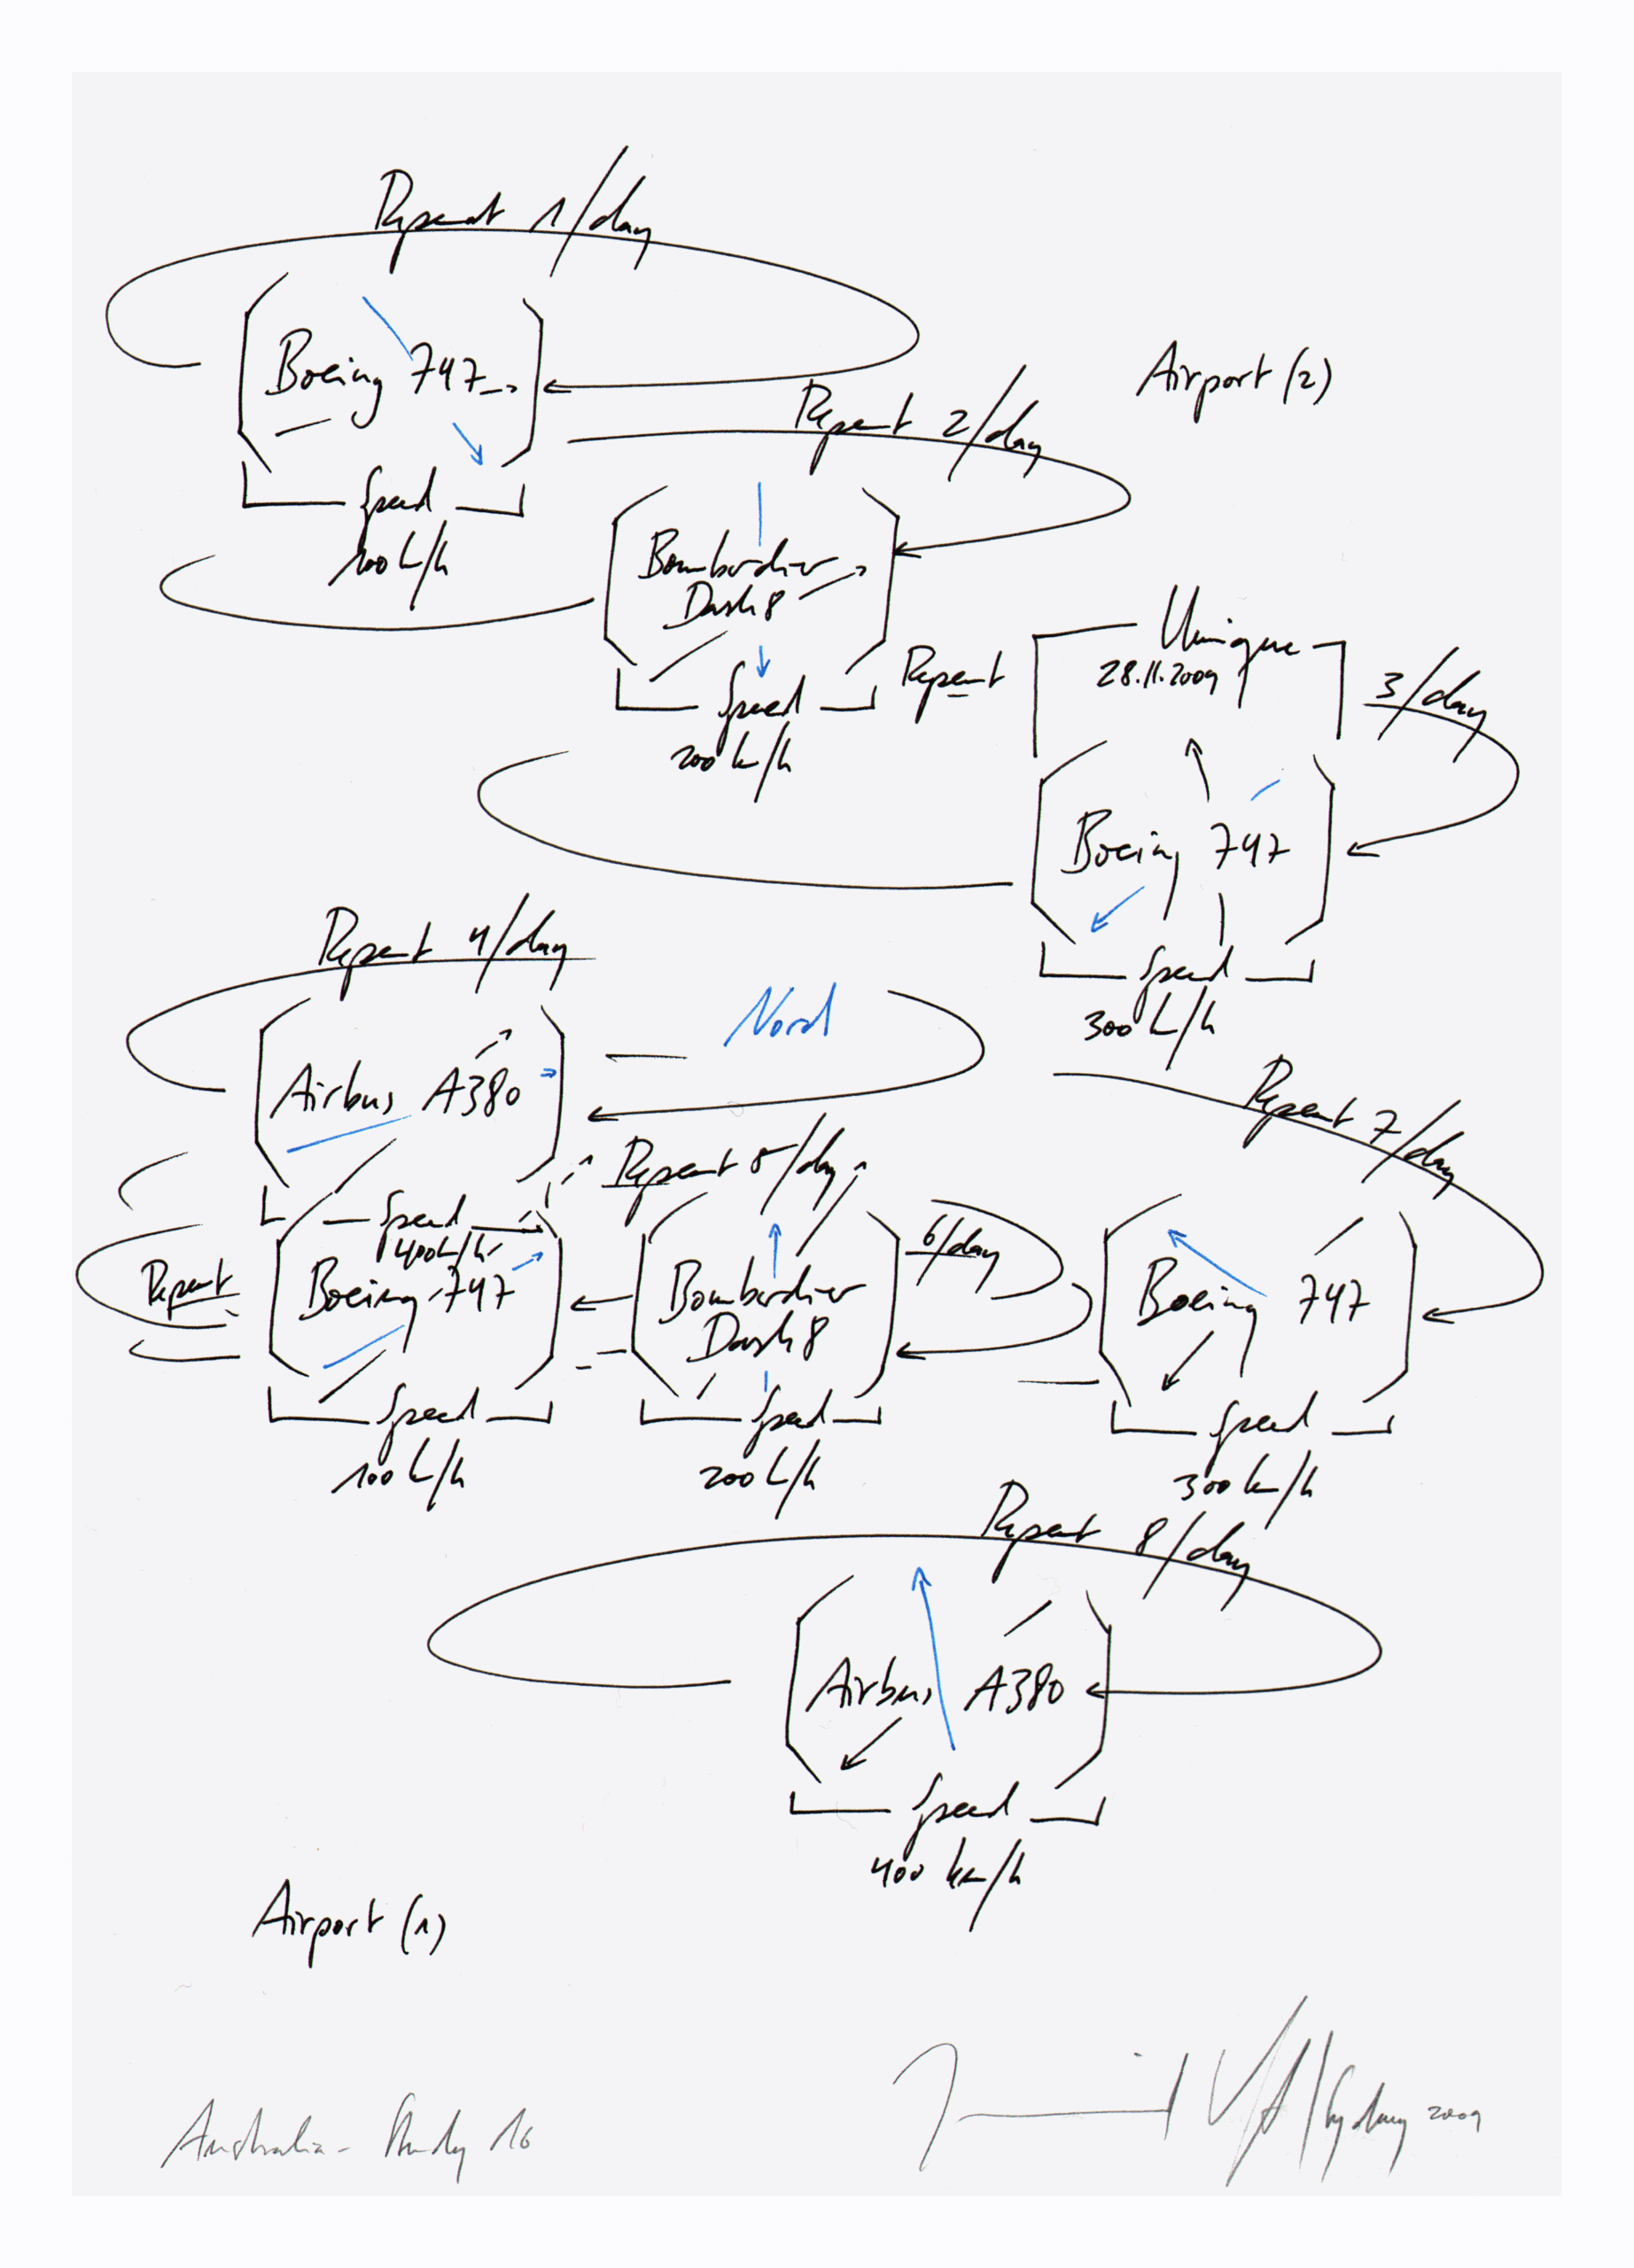 Repeat 1/day
Boeing 747
Speed
100 k/h
Airport (2)
Repeat 2/day
Bombardier
Dash 8
Speed
200 k/h
Repeat
Unique
28.11.2009
3/day
Boeing 747
Speed
300 k/h
Repeat 4/day
Nord
Airbus A380
Speed
400 k/h
Repeat 5/day
Repeat
Boeing 747
Speed
100 k/h
Bombardier
Dash 8
6/day
Speed
200 k/h
Repeat 7/day
Boeing 747
Speed
300 k/h
Repeat 8/day
Airbus A380
Speed
400 km/h
Airport (1)
Australia - Study 16
Sydney 2009